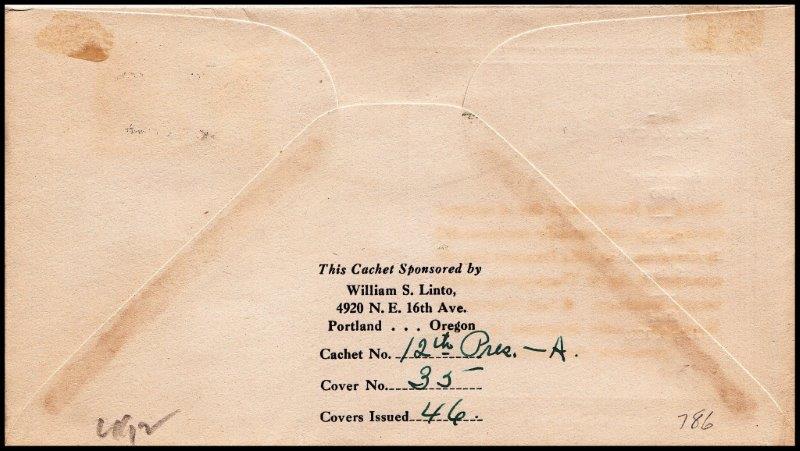 This Cachet Sponsored by
William S. Linto,
4920 N. E. 16th Ave.
Portland . . . Oregon
Cachet No. 12th Pres. — A.
Cover No. 35
Covers Issued 46.
786